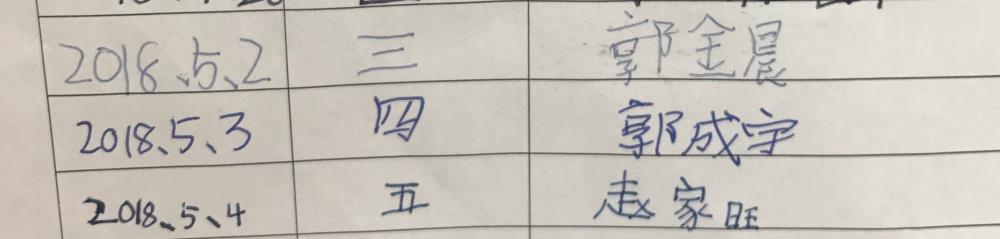 2018、5、2 三 郭全晨
2018、5、3 四 郭成宇
2018、5、4 五 赵家旺